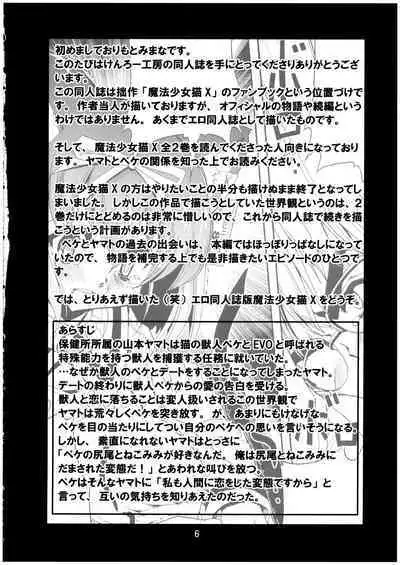 初めましておりもとみまなです。
このたびはけんろー工房の同人誌を手にとってくださりありがとうござ
います。
この同人誌は拙作「魔法少女猫X」のファンブックという位置づけで
す。作者当人が描いておりますが、オフィシャルの物語や続編という
わけではありません。あくまでエロ同人誌として描いたものです。
そして、魔法少女猫X全2巻を読んでくださった人向きになっており
ます。ヤマトとペケの関係を知った上でお読みください。
魔法少女猫Xの方はやりたいことの半分も描けぬまま終了となってし
まいました。しかしこの作品で描こうとしていた世界観というのは、2
巻だけにとどめるのは非常に惜しいので、これから同人誌で続きを描
こうという計画があります。
ペケとヤマトの過去の出会いは、本編ではほっぽりっぱなしになって
いたので、物語を補完する上でも是非描きたいエピソードのひとつで
す。
では、とりあえず描いた(笑)エロ同人誌版魔法少女猫Xをどうぞ。
あらすじ
保健所所属の山本ヤマトは猫の獣人ペケとEVOと呼ばれる
特殊能力を持つ獣人を捕獲する任務に就いていた。
…なぜか獣人のペケとデートをすることになってしまったヤマト。
デートの終わりに獣人ペケからの愛の告白を受ける。
獣人と恋に落ちることは変人扱いされるこの世界観で
ヤマトは荒々しくペケを突き放す。が、あまりにもけなげな
ペケを目の当たりにしてつい自分のペケへの思いを言いそうになる。
しかし、素直になれないヤマトはとっさに
「ペケの尻尾とねこみみが好きなんだ。俺は尻尾とねこみみに
だまされた変態だ!」とあわれな叫びを放つ。
ペケはそんなヤマトに「私も人間に恋をした変態ですから」と
言って、互いの気持ちを知りえたのだった。
6